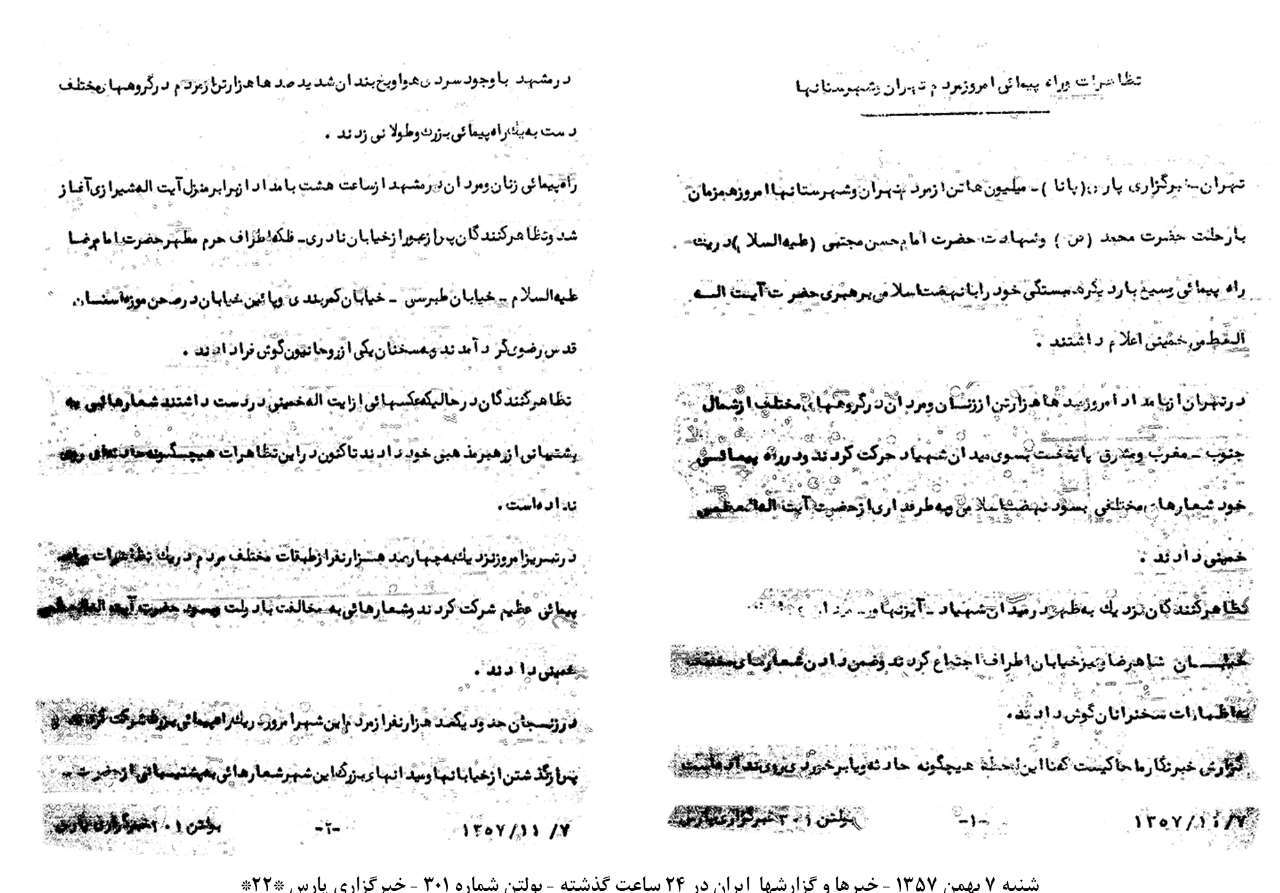 تظاهرات وراه پیمائی امروزمردم تهران وشهرستانها
تهران_خبرگزاری پارس(پانا )_ میلیون هاتن ازمردم تهران وشهرستانهاامروزهمزمان
بارحلت حضرت محمد (ص) وشهادت حضرت امام حسن مجتبی (علیه السلام )دریک
راه پیمائی وسیع باردیگرهمبستگی خودرابانهضت اسلامی برهبری حضرت آیت السه
العظمی خمینی اعلام داشتند .
درتهران ازبامداد امروزصدهاهزارتن اززنان ومردان درگروههای مختلف ازشمال
جنوب _ مغرب ومشرق پایتخت بسوی میدان شهیاد حرکت کردند ودرراه پیمائی
خود شعارهای مختلفی بسود نهضت اسلامی وبه طرفداری ازحضرت آیت اله العظمی
خمینی دادند .
تظاهرکنندگان نزدیك به ظهر درمیدان شهیاد _ آیزنهاور_
خیابان شاهرضا ونیزخیابان اطراف اجتماع کردند وضمن دادن شعارهای مختلف
به اظهارات سخنرانان گوش دادند.
گزارش خبرنگارماحاکیست که تااین لحظه هیچگونه حادثه ویابرخوردی روی نداده است
۱۳۵۷/۱۱/۷ -۱- بولتن ۳۰۱ خبرگزاری پارس
درمشهد باوجود سردی هواویخ بندان شدید صدهاهزارتن ازمردم درگروههای مختلف
دست به یك راه پیمائی بزرگ وطولانی زدند .
راه پیمائی زنان ومردان درمشهد ازساعت هشت بامداد ازبرابرمنزل آیت اله شیرازی آغاز
شد وتظاهرکنندگان پس ازعبورازخیابان نادری_ فلکه اطراف حرم مطهرحضرت امام رضا
علیه السلام _ خیابان طبرسی _ خیابان کمربندی وپائین خیابان درصحن موزه آستان
قدس رضوی گرد آمدند وبه سخنان یکی ازروحانیون گوش فرادادند .
تظاهرکنندگان درحالیکه عکسهائی ازآیت اله خمینی دردست داشتند شعارهائی به
پشتیبانی ازرهبرمذهبی خود دادند تاکنون دراین تظاهرات هیچگونه حادثه ای روی
نداده است .
درتبریزامروزنزدیك به چهارصد هزارنفرازطبقات مختلف مردم دریك تظاهرات وراه
پیمائی عظیم شرکت کردند وشعارهائی به مخالفت بادولت وبسود حضرت آیت اله العظمی
خمینی دادند .
درزنجان حدود یکصد هزارنفرازمردم این شهرامروزدریك راهپیمائی بزرگ شرکت کردند و
پس ازگذشتن ازخیابانهاومیدانهای بزرگ این شهرشعارهائی به پشتیبانی ازحضرت _
۱۳۵۷/۱۱/۷ -۲- بولتن ۳۰۱ خبرگزاری پارس
شنبه ۷ بهمن ۱۳۵۷ - خبرها و گزارشها ایران در ۲۴ ساعت گذشته - بولتن شماره ۳۰۱ - خبرگزاری پارس *۲۲*